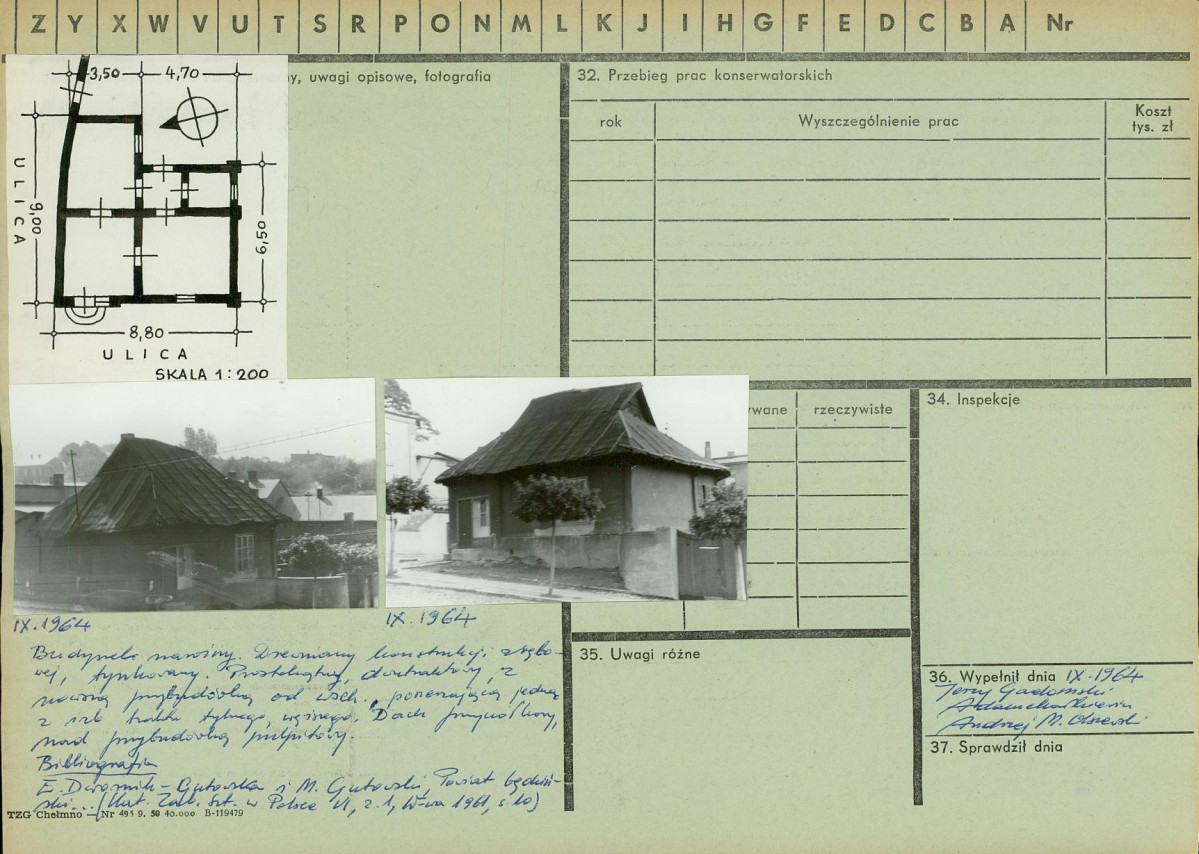 Z Y X W V U T S R P O N M L K J I H G F E D C B A Nr
ny, uwagi opisowe, fotografia
3,50 4,70
ULICA
9,00
6,50
8,80
ULICA
SKALA 1:200
32. Przebieg prac konserwatorskich
rok
Wyszczególnienie prac
Koszt
tys. zł
wane
rzeczywiste
34. Inspekcje
IX. 1964
IX. 1964
Budynek narożny. Drewniany konstrukcji zrębo-
wej, tynkowany. Prostokątny, dwutraktowy, z
nowszą przybudówką od wsch., poszerzającą jedną
z izb traktu tylnego, węższego. Dach przyczółkowy,
nad przybudówką pulpitowy.
Bibliografia
E. Dwornik-Gutowska i M. Gutowski, Powiat będziń-
ski... (Kat. Zab. Szt. w Polsce VI, z. 1, W-wa 1961, s. 10)
TZG Chełmno — Nr 495 9. 59 40.000 B-119479
35. Uwagi różne
36. Wypełnił dnia IX-1964
Jerzy Gadomski
Andrzej M. Olszewski
37. Sprawdził dnia